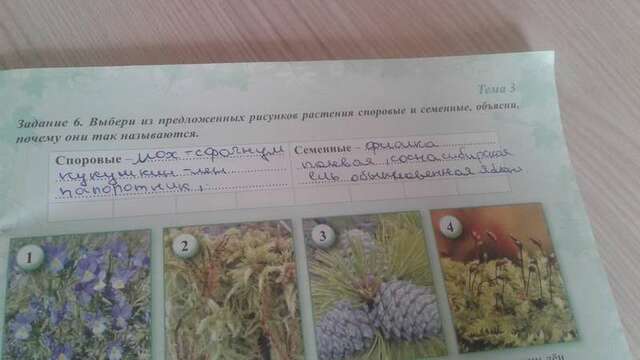 Тема 3
Задание 6. Выбери из предложенных рисунков растения споровые и семенные, объясни,
почему они так называются.
Споровые – мох – сфагнум
кукушкин лён
папоротник,
Семенные – фиалка
полевая, сосна сибирская
ель обыкновенная
1
2
3
4
лён